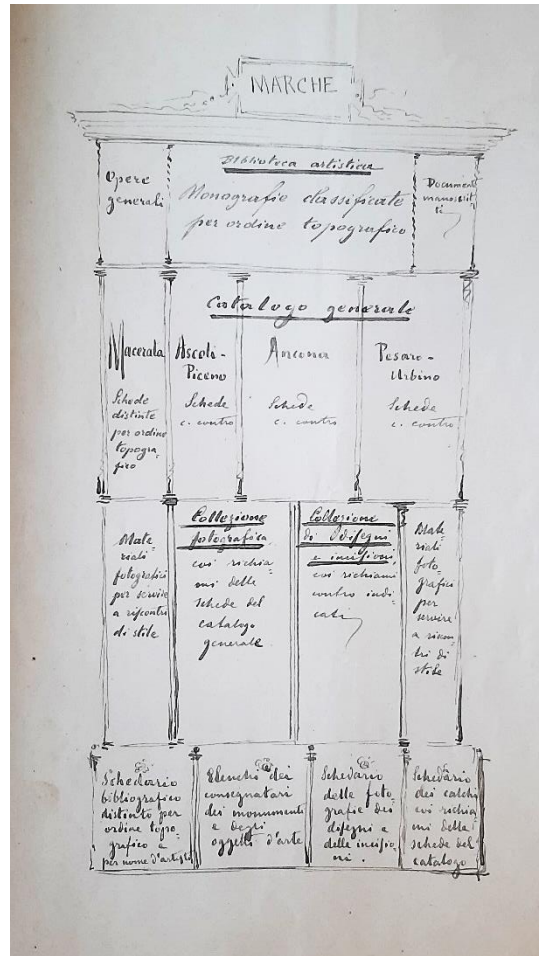 MARCHE
Opere
generali
Biblioteca artistica
Monografie classificate
per ordine topografico
Documenti
manoscrit-
ti
Catalogo generale
Macerata
Schede
distinte
per ordine
topogra-
fico
Ascoli-
Piceno
Schede
c. contro
Ancona
Schede
c. contro
Pesaro-
Urbino
Schede
c. contro
Mate-
riali
fotografici
per servire
a riscontri
di stile
Collezione
fotografica,
coi richia-
mi delle
schede del
catalogo
generale
Collezione
di disegni
e incisioni,
coi richiami
contro indi-
cati
Mate-
riali
foto-
grafici
per
servire
a riscon-
tri di
stile
Schedario
bibliografico
distinto per
ordine topo-
grafico e
per nome d'artista
Elenchi dei
consegnatari
dei monumenti
e degli
oggetti d'arte
Schedario
delle foto-
grafie dei
disegni e
delle incisio-
ni.
Schedario
dei calchi
coi richia-
mi della
schede del
catalogo